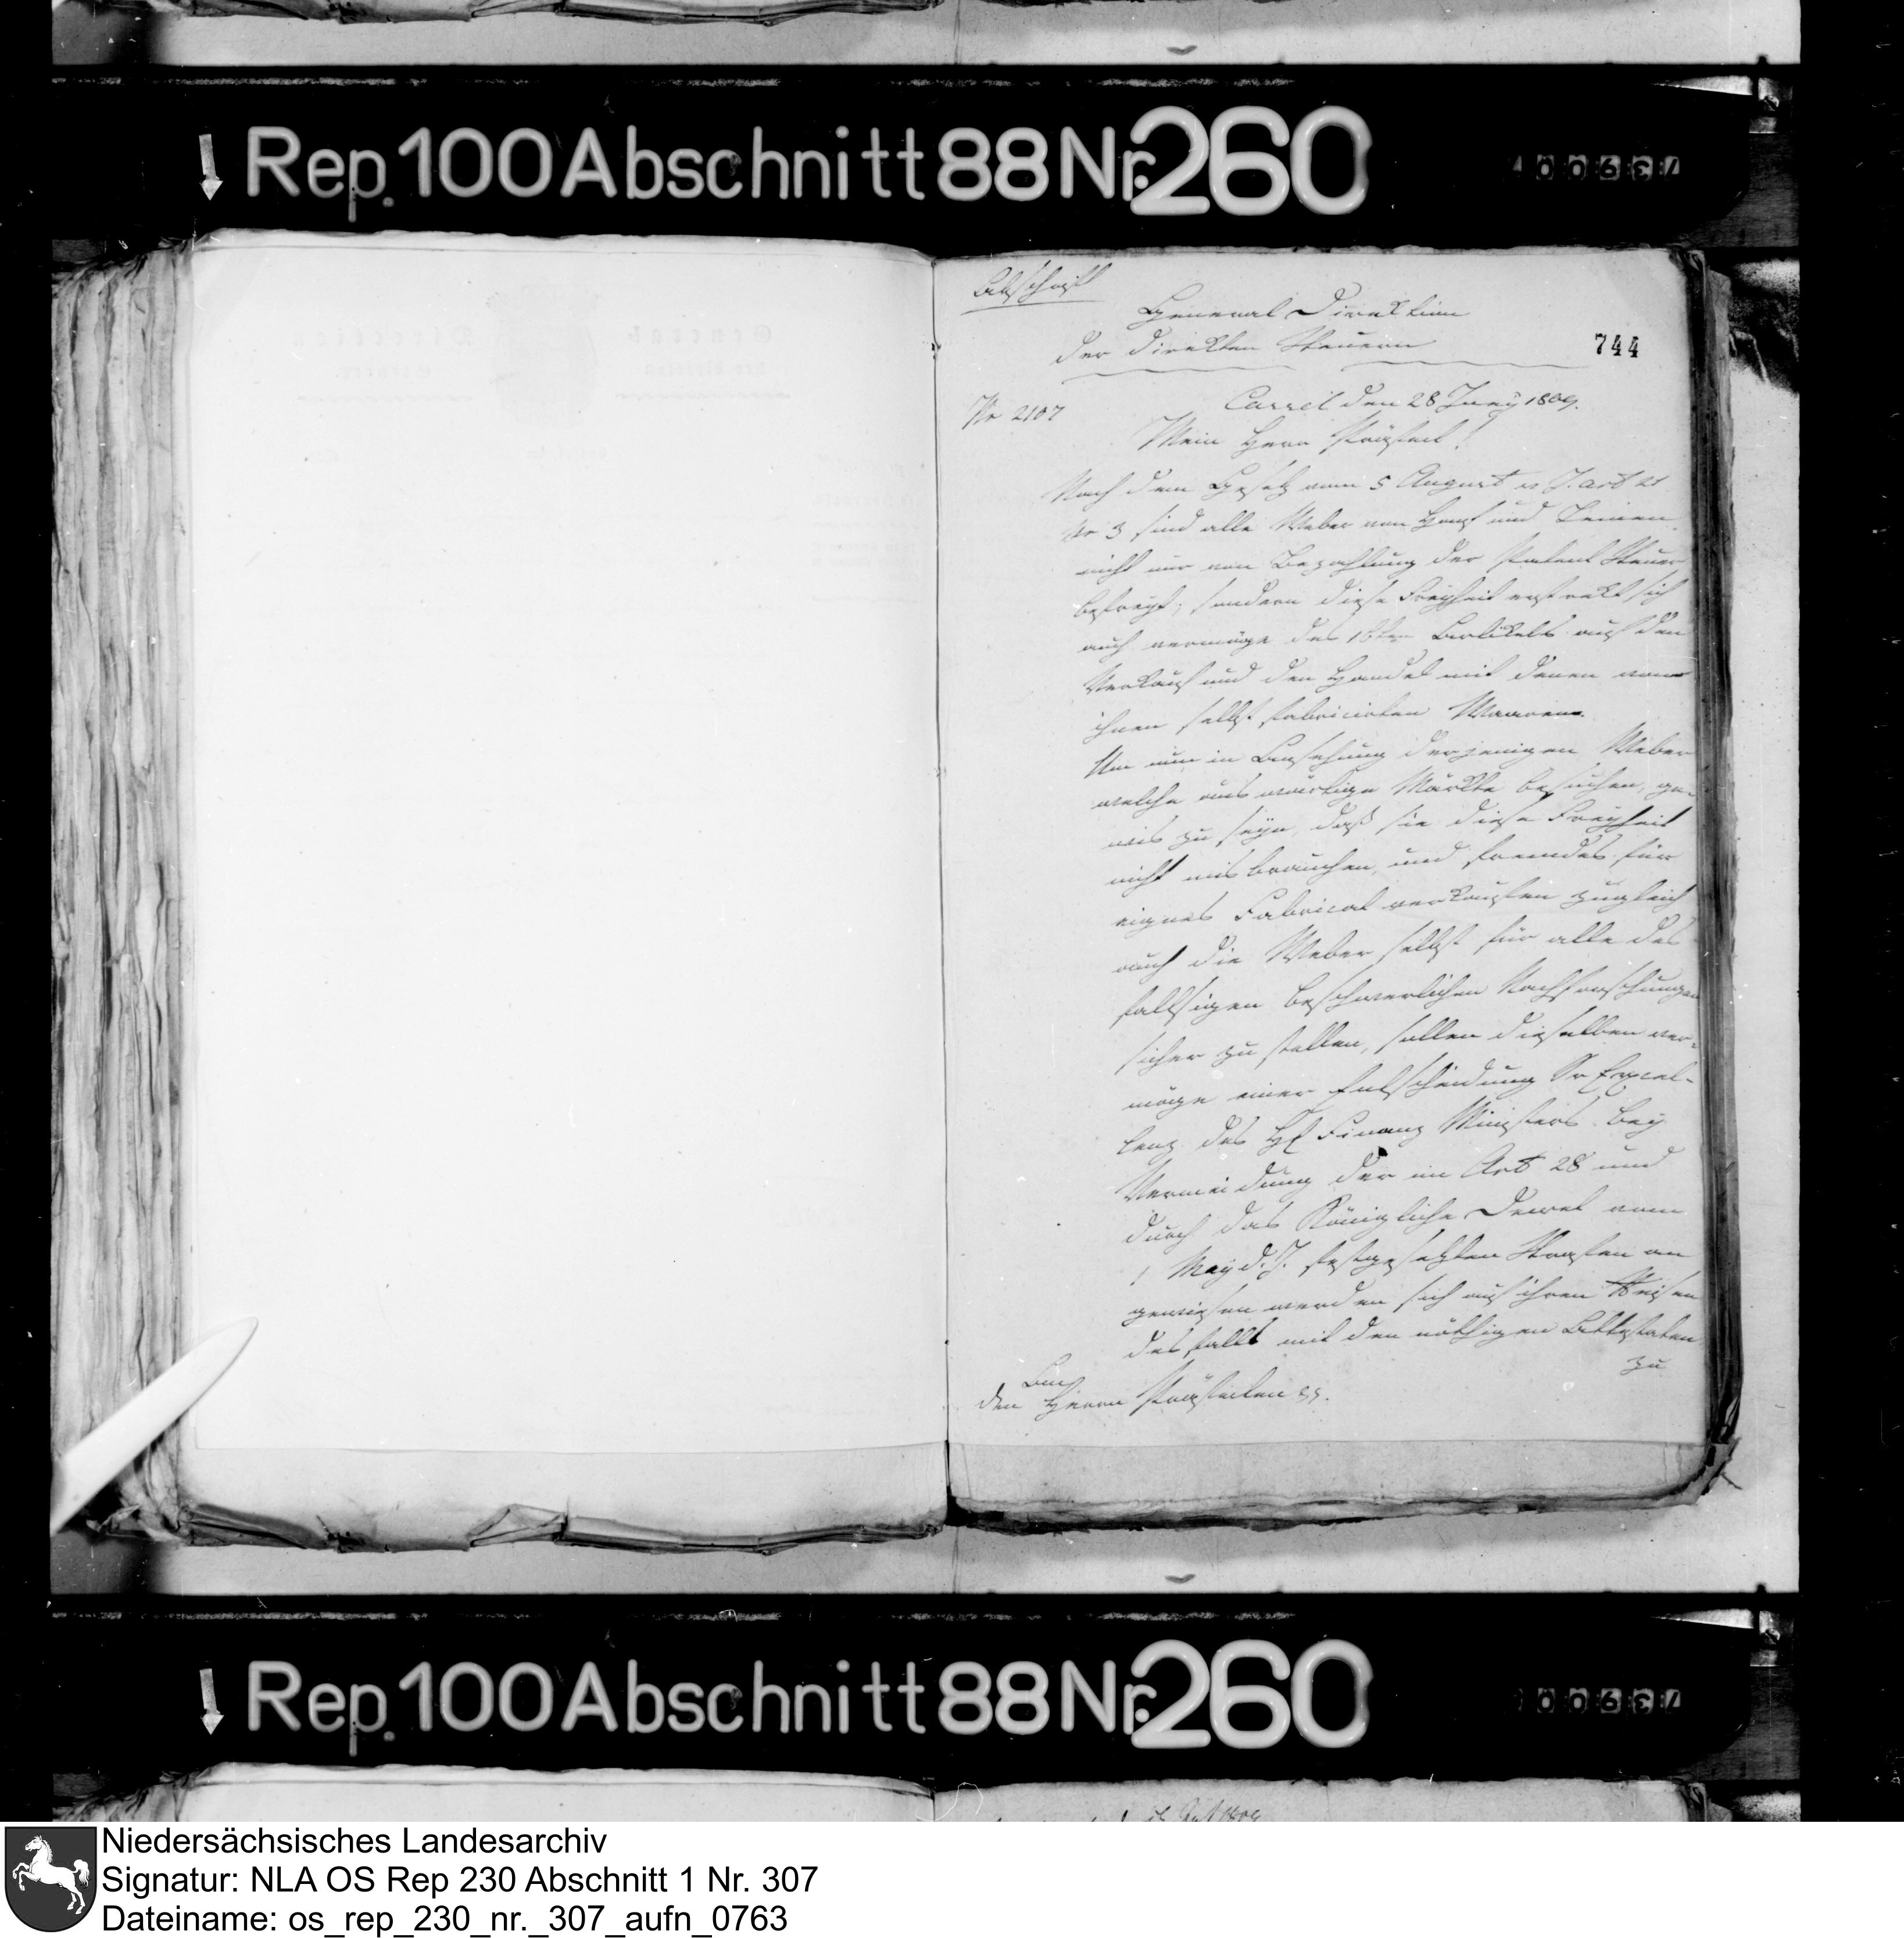 Rep. 100 Abschnitt 88 Nr. 260
Abschrift
General Direktion
der direkten Steuern
744
Nr 2107
Cassel den 28 Juny 1809.
Mein Herr Präfect!
Nach dem Gesetz vom 5 August v. J. art 21
Nr 3 sind alle Weber von Hanf und Leinen
nicht nur von Bezahlung der Patent Steuer
befreyt, sondern diese Freyheit erstrekt sich
auch vermöge des 16ten Artikels auf den
Verkauf und den Handel mit denen von
ihnen selbst fabricirten Waaren.
Um nun in Ansehung derjenigen Weber
welche auswärtige Märkte besuchen, ge-
wis zu seyn, daß sie diese Freyheit
nicht misbrauchen, und fremdes für
eignes Fabricat verkaufen zugleich
auch die Weber selbst für alle des
fallsigen beschwerlichen Nachforschungen
sicher zu stellen, sollen dieselben ver-
möge einer Entscheidung Sr Excel-
lenz des H Finanz Ministers bey
Vermeidung der im Art 28 und
durch das Königliche Decret vom
1 May d. J. festgesetzten Strafen an
gewiesen werden sich auf ihren Reisen
desfalls mit den nöthigen Attestaten
zu
An
den Herrn Präfecten
Rep. 100 Abschnitt 88 Nr. 260
Niedersächsisches Landesarchiv
Signatur: NLA OS Rep 230 Abschnitt 1 Nr. 307
Dateiname: os_rep_230_nr._307_aufn_0763